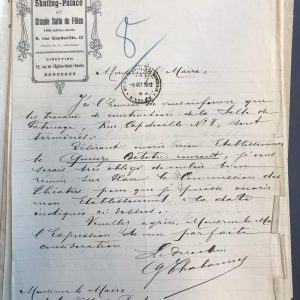 Skating-Palace
ET
Grande Salle de Fêtes
8, rue Capdeville, 10
DIRECTION
BORDEAUX
8
Monsieur le Maire,
J'ai l'honneur de vous informer que
les travaux de construction de la Salle de
Patinage, Rue Capdeville Nº 8, sont
terminés.
Désirant ouvrir mon Etablissement
le Quinze Octobre courant, je vous
serais très obligé de vouloir bien
réunir sur place la Commission des
Théatres pour que je puisse ouvrir
mon Etablissement à la date
indiquée ci dessus.
Veuillez agréer, Monsieur le Maire
l'Expression de ma parfaite
considération
Le directeur
Monsieur le Maire